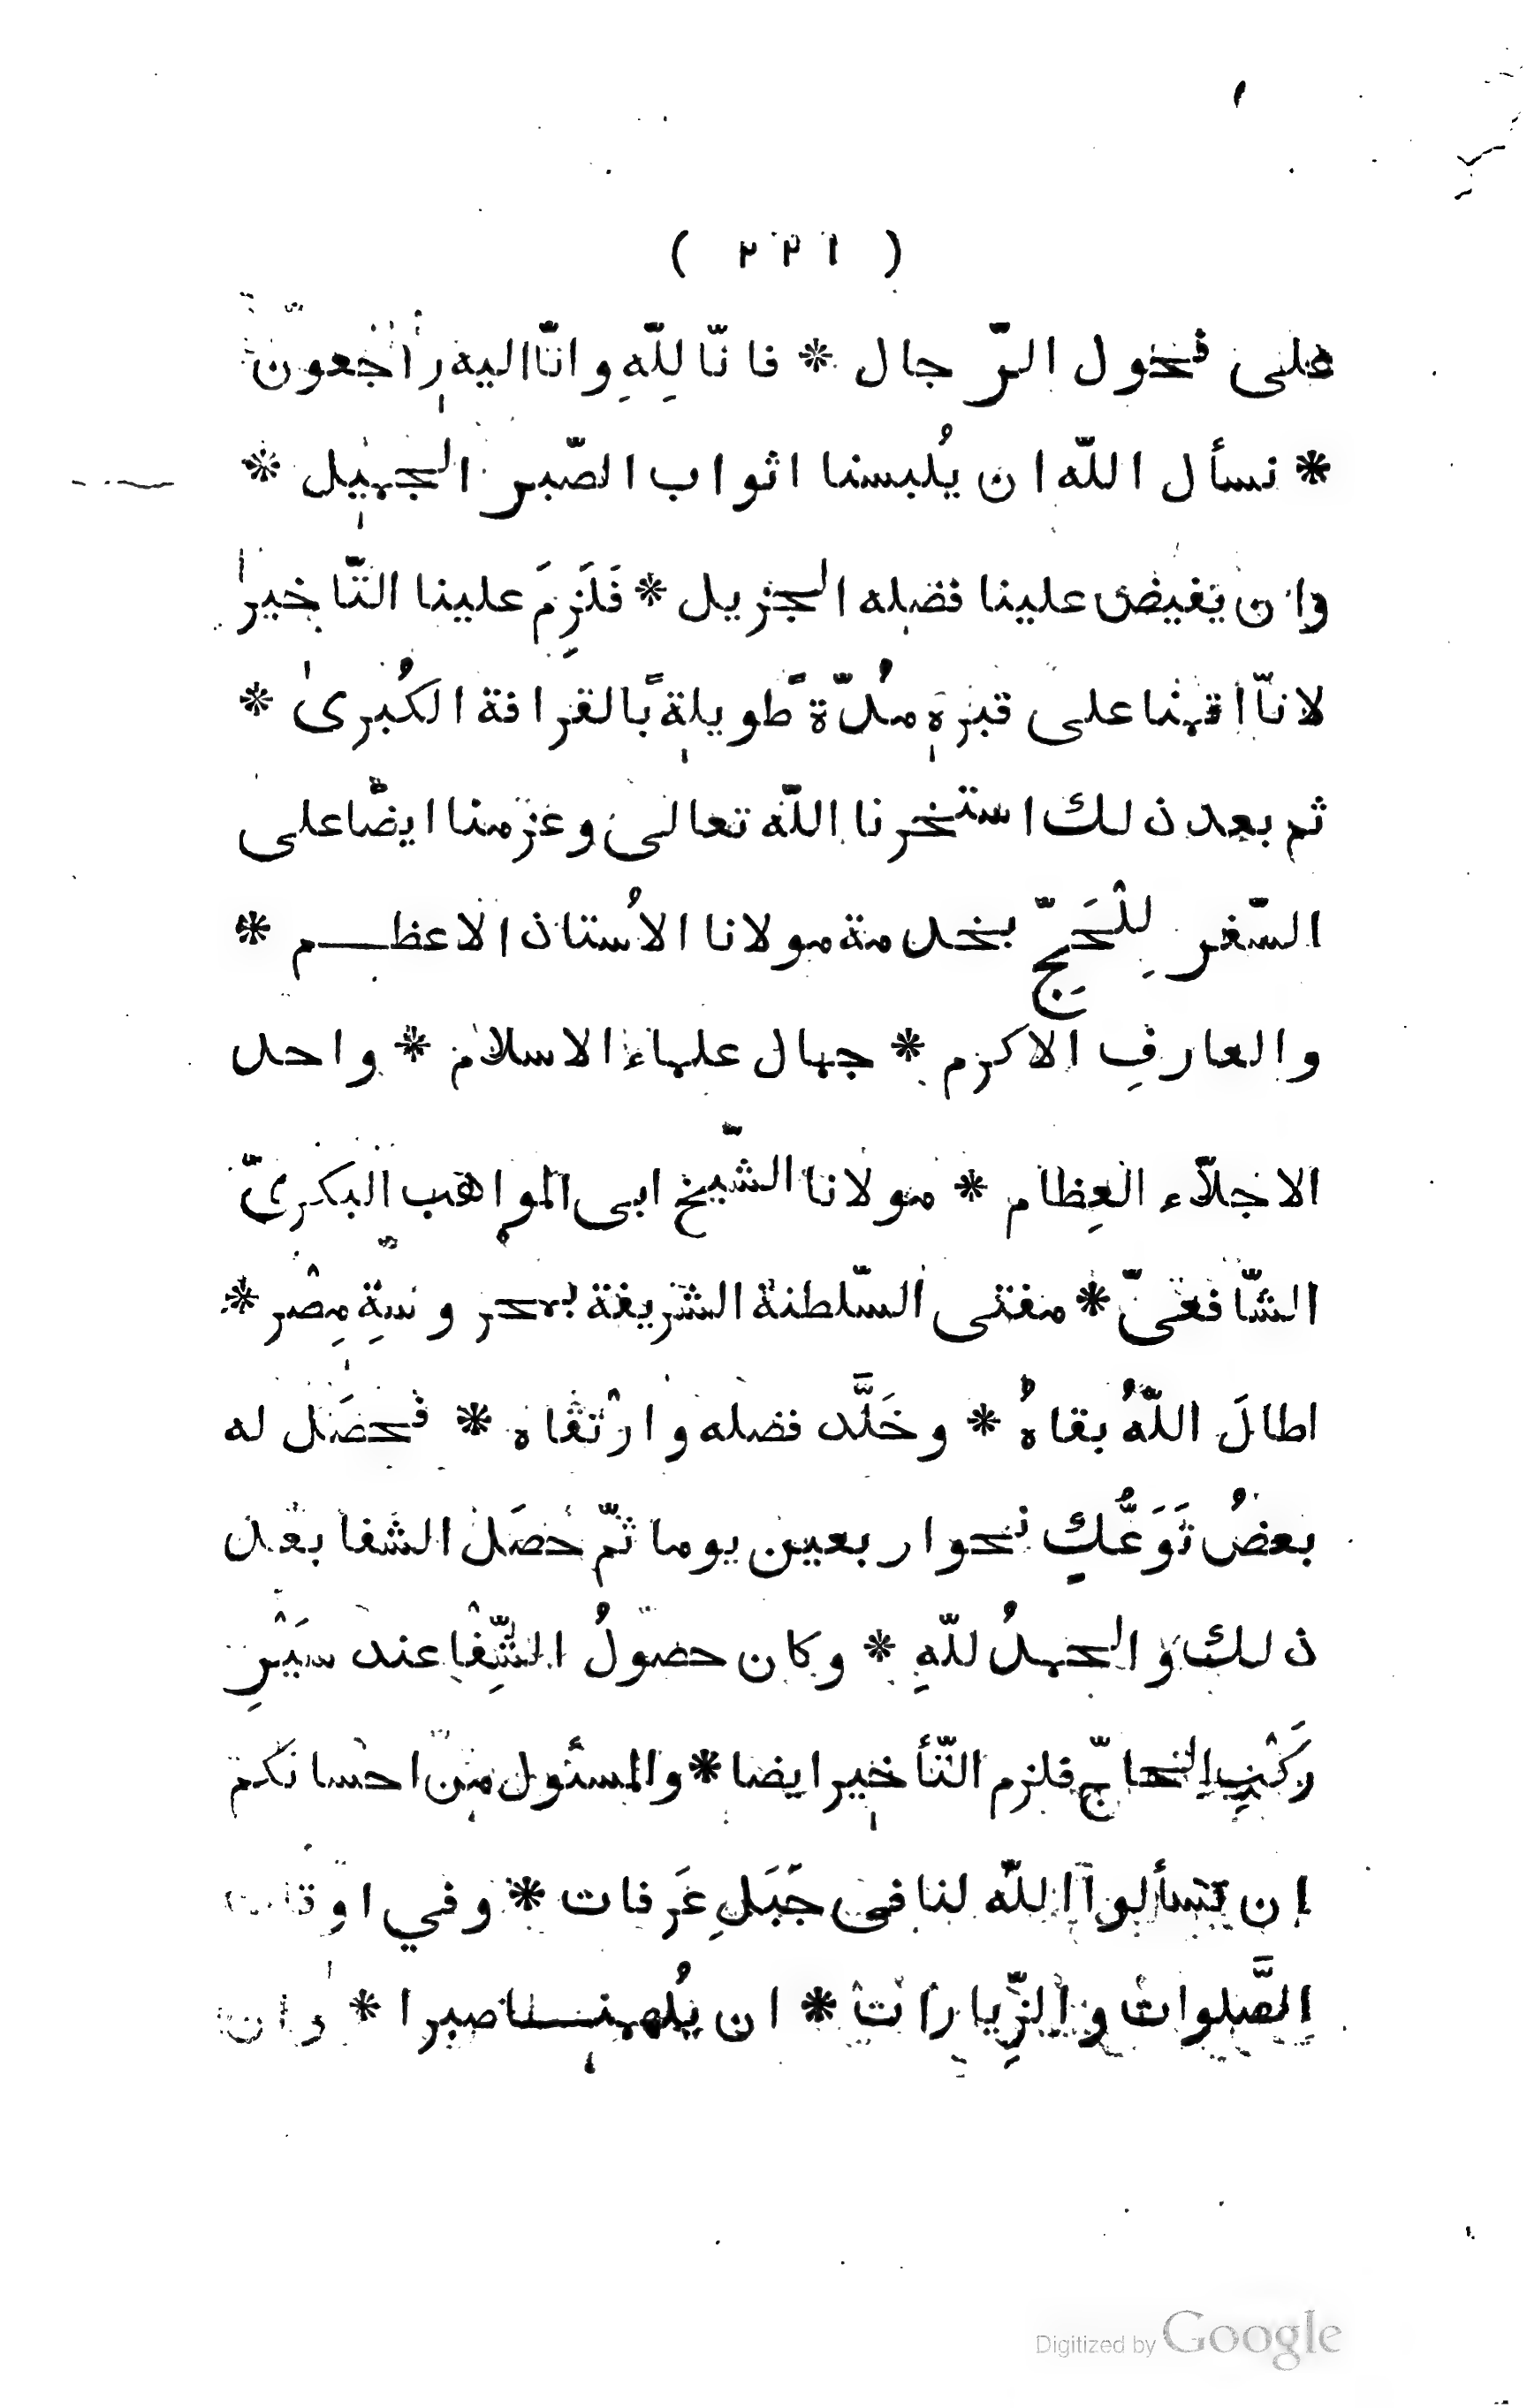 ( ٢٢١ )
على فحول الرّجال * فانّا لِلّهِ وانّا اليه راجعون
* نسأل اللّه ان يُلبسنا اثواب الصّبر الجميل *
وان يفيض علينا فضله الجزيل * فَلَزِمَ علينا التّاخير
لانّا اقمنا على قبره مُدّةً طويلةً بالقرافة الكُبرىٰ *
ثم بعد ذلك استخرنا اللّه تعالى وعزمنا ايضًا على
السّفر لِلْحَجِّ بخدمة مولانا الاُستاذ الاعظم *
والعارفِ الاكرم * جمال علماء الاسلام * واحد
الاجلّاء العِظام * مولانا الشّيخ ابى المواهب البكرىّ
الشّافعىّ * مفتى السّلطنة الشريفة بمحروسةِ مِصْر *
اطالَ اللّهُ بقاهُ * وخَلَّد فضله وارْتقاه * فحصَل له
بعضُ تَوَعُّكٍ نحو اربعين يوما ثمّ حصَل الشفا بعد
ذلك والحمدُ للّهِ * وكان حصولُ الشِّفْا عند سَيْرِ
رَكْبِ الحاجّ فلزم التّأخير ايضا * والمسئول من احسانكم
ان تسألوا اللّه لنا فى جَبَلِ عَرَفات * وفي اوقات
الصَّلوات والزِّيارات * ان يُلهمنا صبرا * وان
Digitized by Google